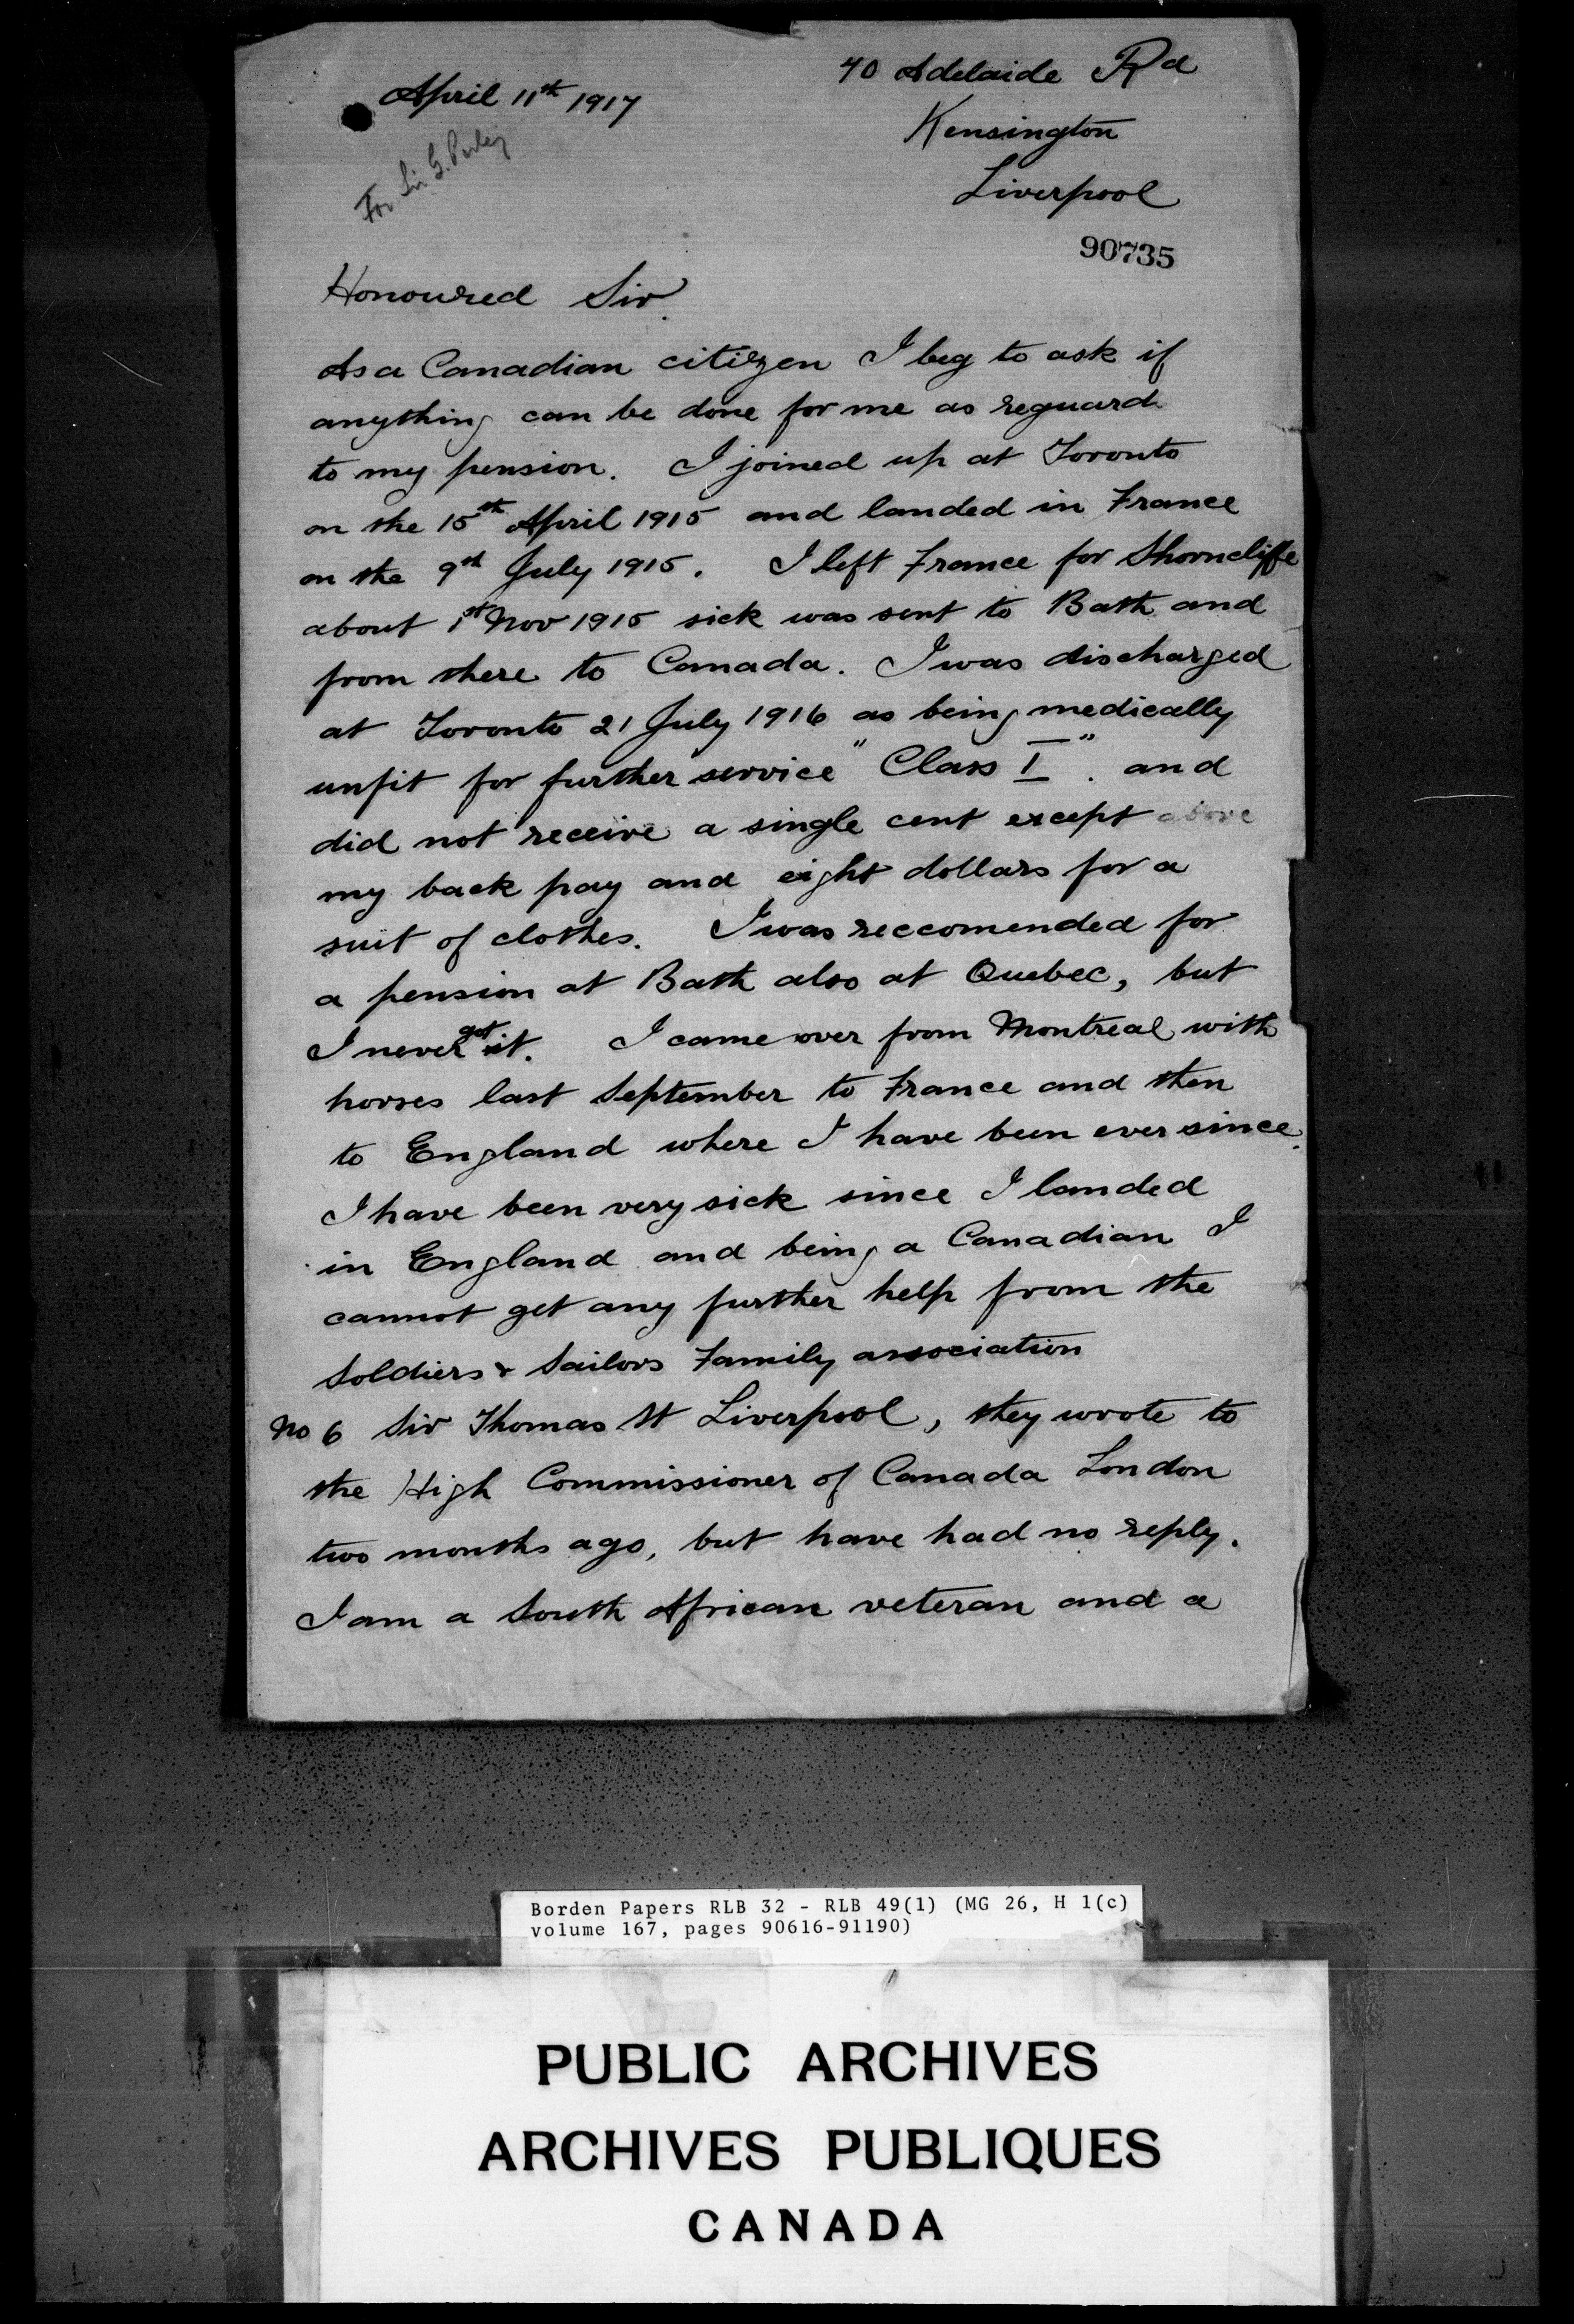 April 11th 1917
40 Adelaide Rd
Kensington
Liverpool
For Sir G. Perley
90735
Honoured Sir.
As a Canadian citizen I beg to ask if
anything can be done for me as reguard
to my pension. I joined up at Toronto
on the 15th April 1915 and landed in France
on the 9th July 1915. I left France for Shorncliffe
about 1st Nov 1915 sick was sent to Bath and
from there to Canada. I was discharged
at Toronto 21 July 1916 as being medically
unfit for further service "Class I". and
did not receive a single cent except above
my back pay and eight dollars for a
suit of clothes. I was reccomended for
a pension at Bath also at Quebec, but
I never got it. I came over from Montreal with
horses last September to France and then
to England where I have been ever since.
I have been very sick since I landed
in England and being a Canadian I
cannot get any further help from the
Soldiers & Sailors Family association
No 6 Sir Thomas St Liverpool, they wrote to
the High Commissioner of Canada London
two months ago, but have had no reply.
I am a South African veteran and a
Borden Papers RLB 32 - RLB 49(1) (MG 26, H 1(c)
volume 167, pages 90616-91190)
PUBLIC ARCHIVES
ARCHIVES PUBLIQUES
CANADA